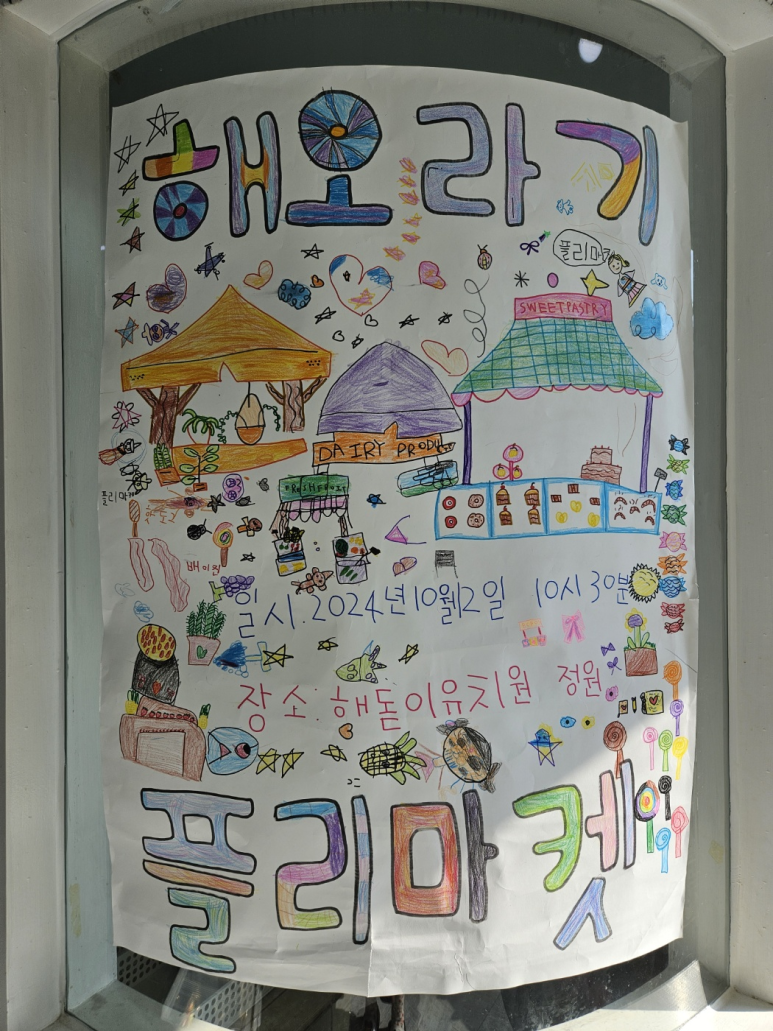 해오라기
플리마켓
SWEETPASTRY
DAIRY PRODU
FRESHFRUIT
플리마켓
배이진
일시.2024년10월12일 10시30분
장소:해돋이유치원 정원
플리마켓